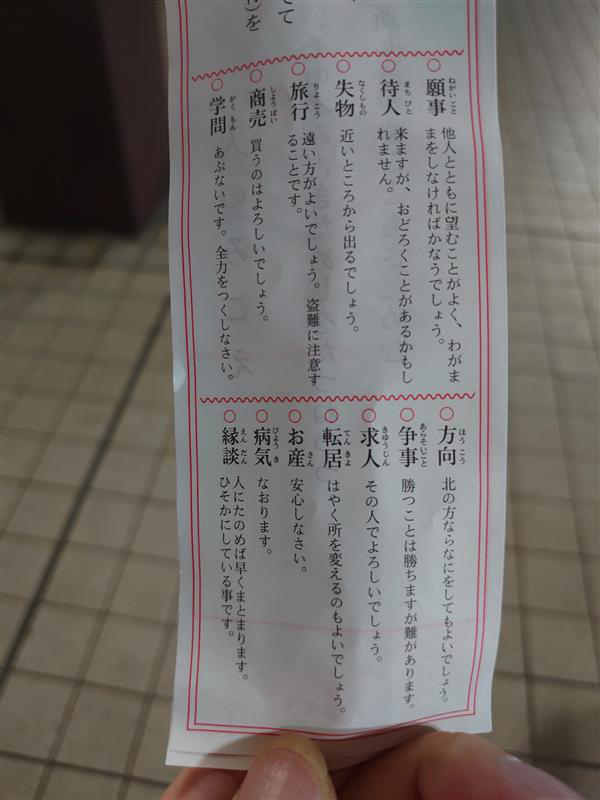 して
を
○願事 ねがいごと
他人とともに望むことがよく、わがま
まをしなければかなうでしょう。
○待人 まちびと
来ますが、おどろくことがあるかもし
れません。
○失物 なくしもの
近いところから出るでしょう。
○旅行 りょこう
遠い方がよいでしょう。盗難に注意す
ることです。
○商売 しょうばい
買うのはよろしいでしょう。
○学問 がくもん
あぶないです。全力をつくしなさい。
○方向 ほうこう
北の方ならなにをしてもよいでしょう。
○争事 あらそいごと
勝つことは勝ちますが難があります。
○求人 きゅうじん
その人でよろしいでしょう。
○転居 てんきょ
はやく所を変えるのもよいでしょう。
○お産 さん
安心しなさい。
○病気 びょうき
なおります。
○縁談 えんだん
人にたのめば早くまとまります。
ひそかにしている事です。